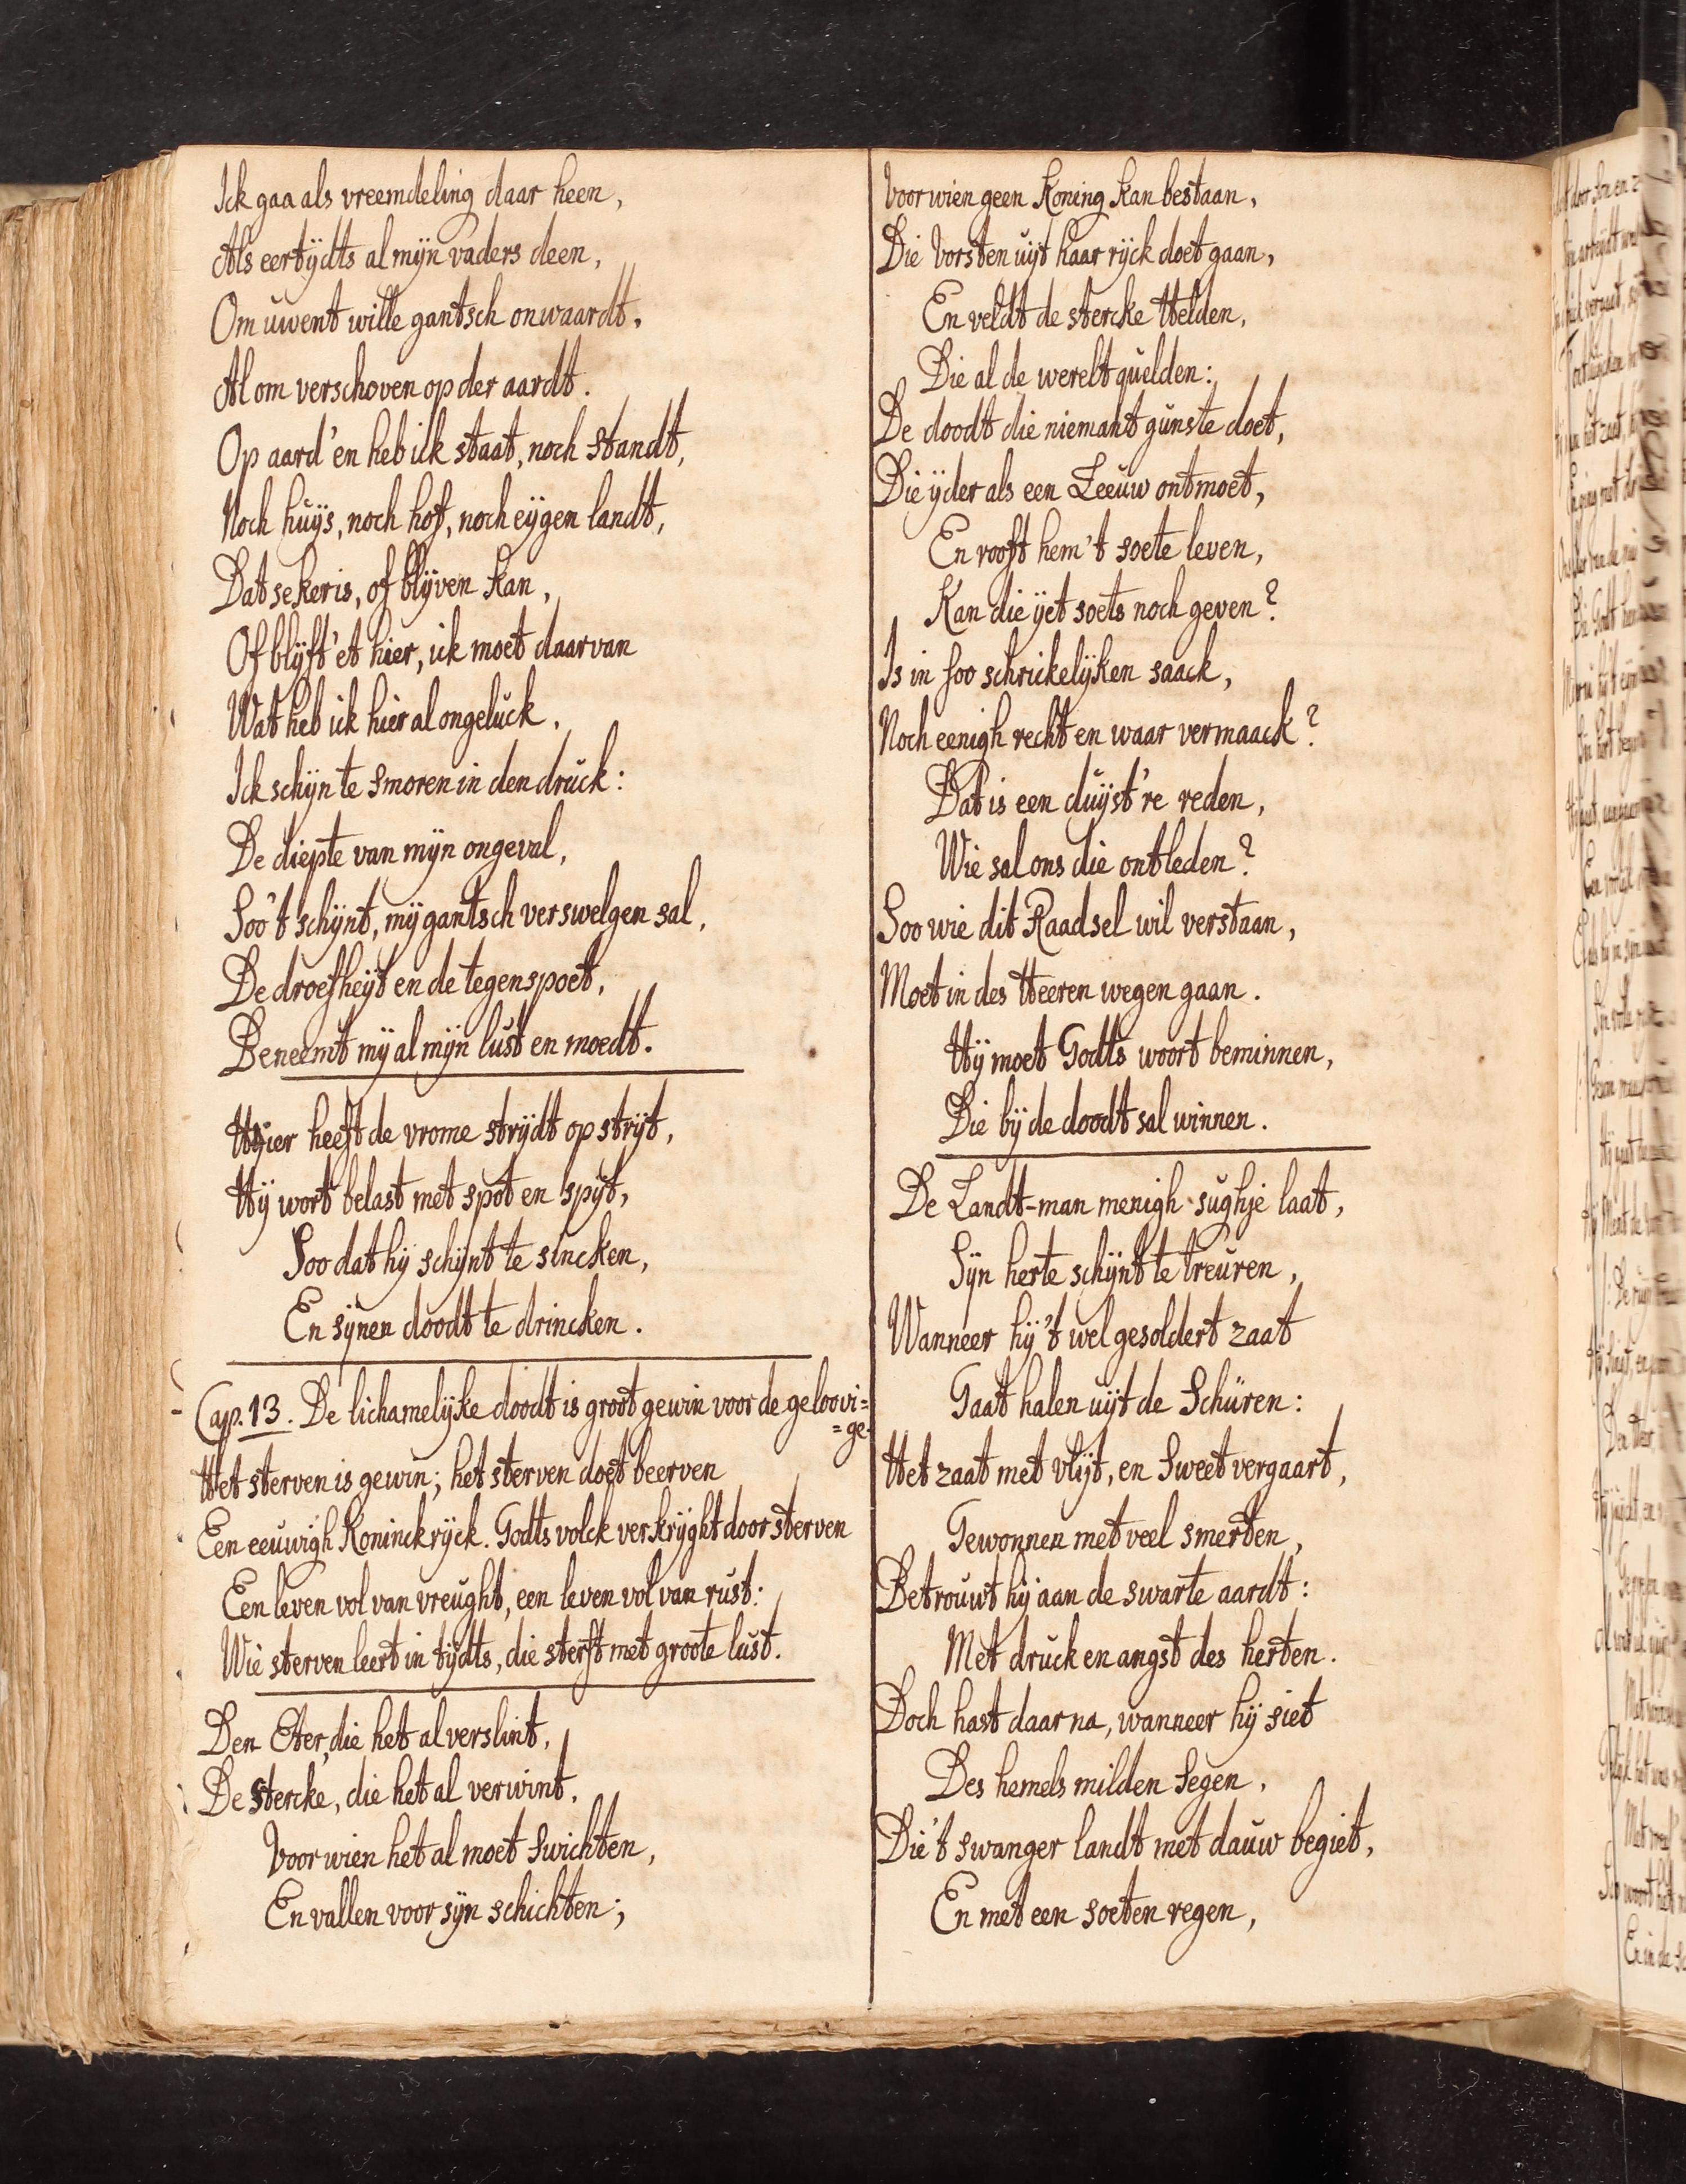 Ick gaa als vreemdeling daar heen,
Als eertÿdts al mÿn vaders deen,
Om uwent wille gantsch onwaardt,
Al om verschoven op der aardt.
Op aard' en heb ick staat, noch standt,
Noch huÿs, noch hof, noch eÿgen landt,
Dat seker is, of blÿven kan,
Of blÿft 'et hier, ick moet daar van
Wat heb ick hier al ongeluck,
Ick schÿn te smoren in den druck:
De diepte van mÿn ongeval,
Soo 't schÿnt, mÿ gantsch verswelgen sal,
De droefheÿt en de tegenspoet,
Beneemt mÿ al mÿn lust en moedt.
Hier heeft de vrome strÿdt op strÿt,
Hÿ wort belast met spot en spÿt,
Soo dat hÿ schÿnt te sincken,
En sÿnen doodt te drincken.
Cap. 13. De lichamelÿke doodt is groot gewin voor de geloovi=
=ge.
Het sterven is gewin; het sterven doet beerven
Een eeuwigh Koninckrÿck. Godts volck verkrÿght door sterven
Een leven vol van vreught, een leven vol van rust:
Wie sterven leert in tÿdts, die sterft met groote lust.
Den Eter, die het al verslint,
De stercke, die het al verwint,
Voor wien het al moet swichten,
En vallen voor sÿn schichten;
Voor wien geen Koning kan bestaan,
Die Vorsten uÿt haar rÿck doet gaan,
En veldt de stercke Helden,
Die al de werelt quelden:
De doodt die niemant gunste doet,
Die ÿder als een Leeuw ontmoet,
En rooft hem 't soete leven,
Kan die ÿet soets noch geven?
Is in soo schrickelÿken saack,
Noch eenigh recht en waar vermaack?
Dat is een duÿst're reden,
Wie sal ons die ontleden?
Soo wie dit Raadsel wil verstaan,
Moet in des Heeren wegen gaan.
Hÿ moet Godts woort beminnen,
Die bÿ de doodt sal winnen.
De Landt-man menigh sughje laat,
Sÿn herte schÿnt te treuren,
Wanneer hÿ 't wel gesoldert zaat
Gaat halen uÿt de Schuren:
Het zaat met vlÿt, en Sweet vergaart,
Gewonnen met veel smerten,
Betrouwt hÿ aan de swarte aardt:
Met druck en angst des herten.
Doch hast daar na, wanneer hÿ siet
Des hemels milden Segen,
Die 't swanger landt met dauw begiet,
En met een soeten regen,